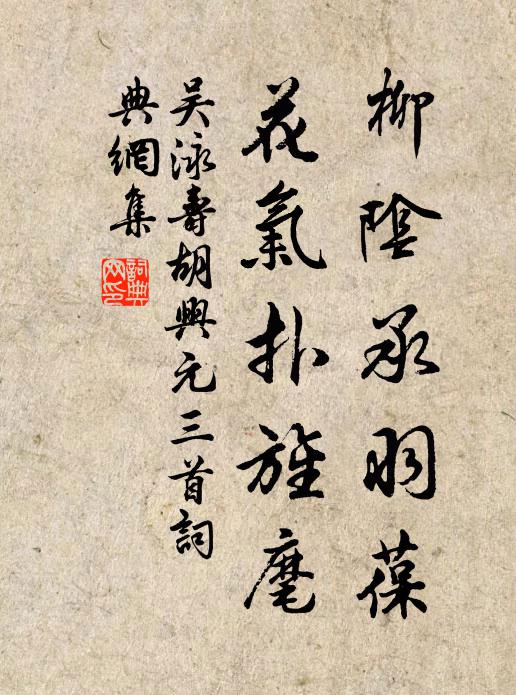 柳陰承羽葆
花氣扑旌麾
吳泳壽胡興元三首詞
典網集
詞典網印